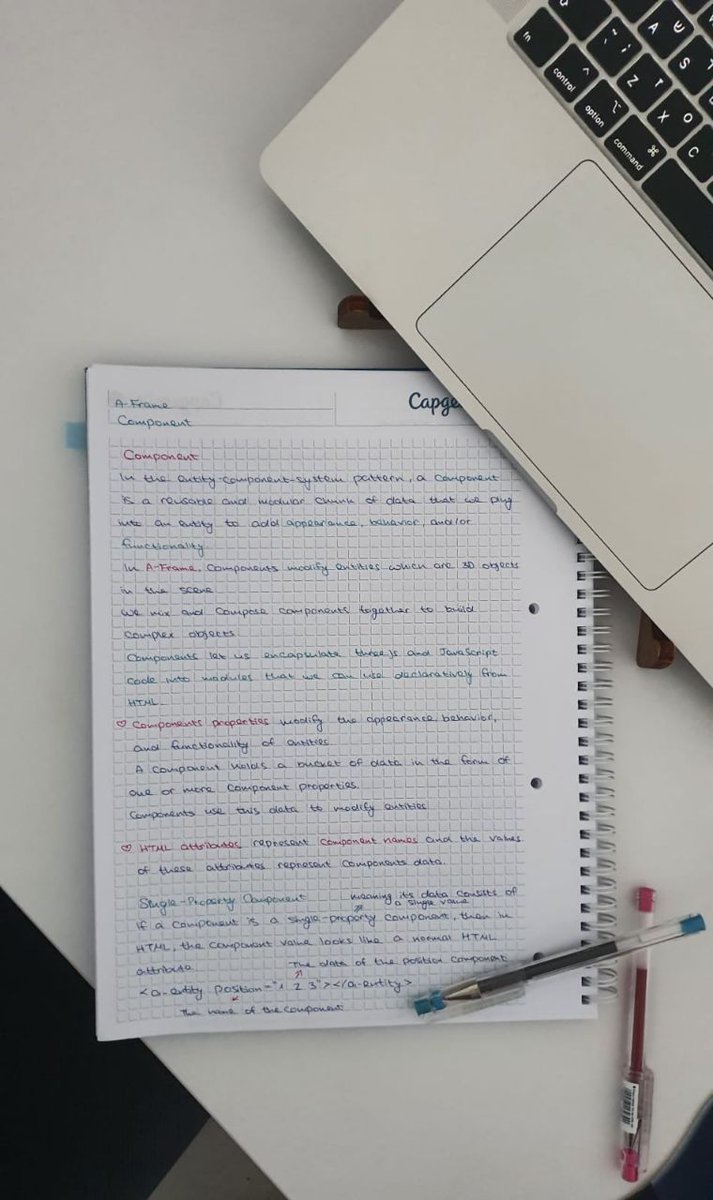 fn
control
option
command
⌘
A
S
Z
X
C
ש
A-Frame
Capge
Component
Component
In the entity-component-system pattern, a component
is a reusable and modular chunk of data that we plug
into an entity to add appearance, behavior, and/or
functionality.
In A-Frame, Components modify entities which are 3D objects
in the scene
We mix and compose components together to build
complex objects
Components let us encapsulate three.js and JavaScript
code into modules that we can use declaratively from
HTML.
♡ Components properties modify the appearance, behavior,
and functionality of entities
A component holds a bucket of data in the form of
one or more component properties.
Components use this data to modify entities
♡ HTML attributes represent component names and the values
of these attributes represent components data.
Single-Property Component
meaning its data consists of
a single value
if a component is a single-property component, then in
HTML, the component value looks like a normal HTML
attribute
The data of the position component
<a-entity position="1 2 3"></a-entity>
The name of the component